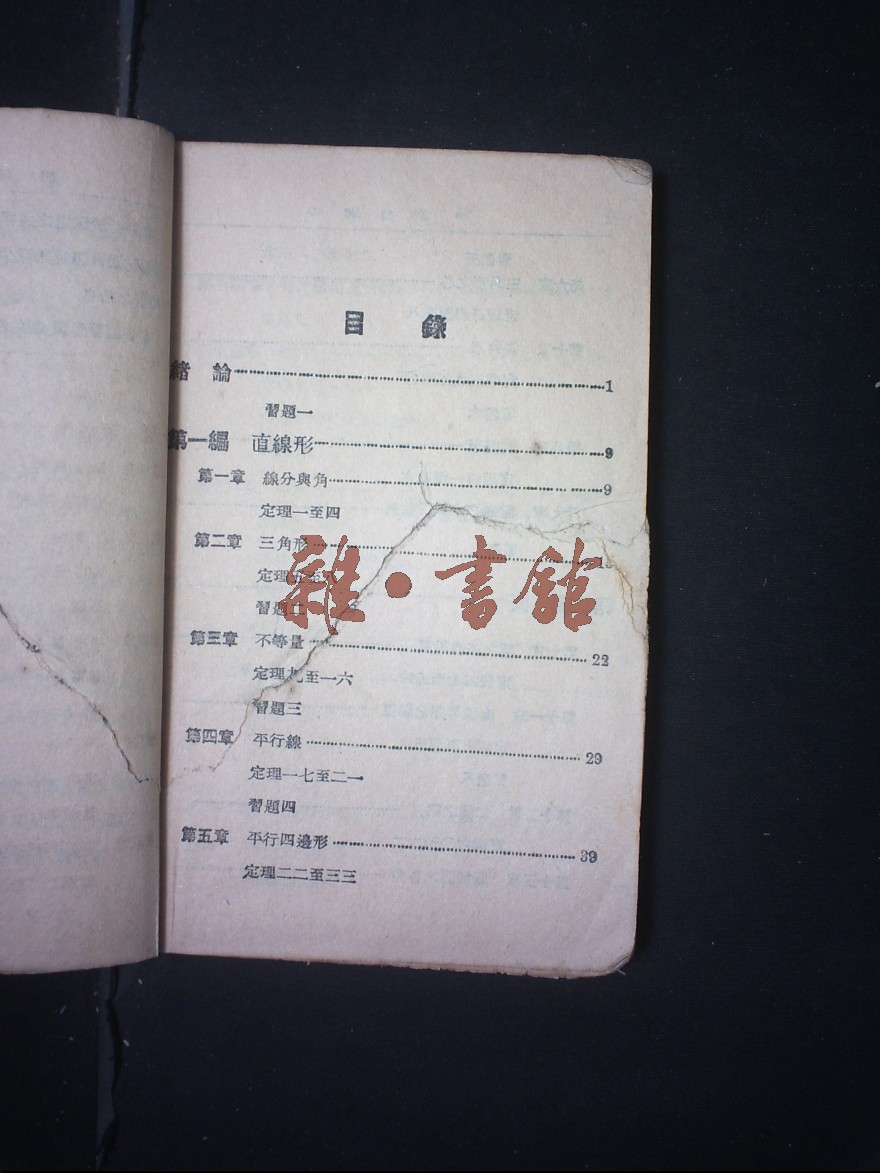 目錄
緒論 1
習題一
第一編 直線形 9
第一章 線分與角 9
定理一至四
第二章 三角形
定理五至八
習題二
第三章 不等量 22
定理九至一六
習題三
第四章 平行線 29
定理一七至二一
習題四
第五章 平行四邊形 39
定理二二至三三
雜·書館